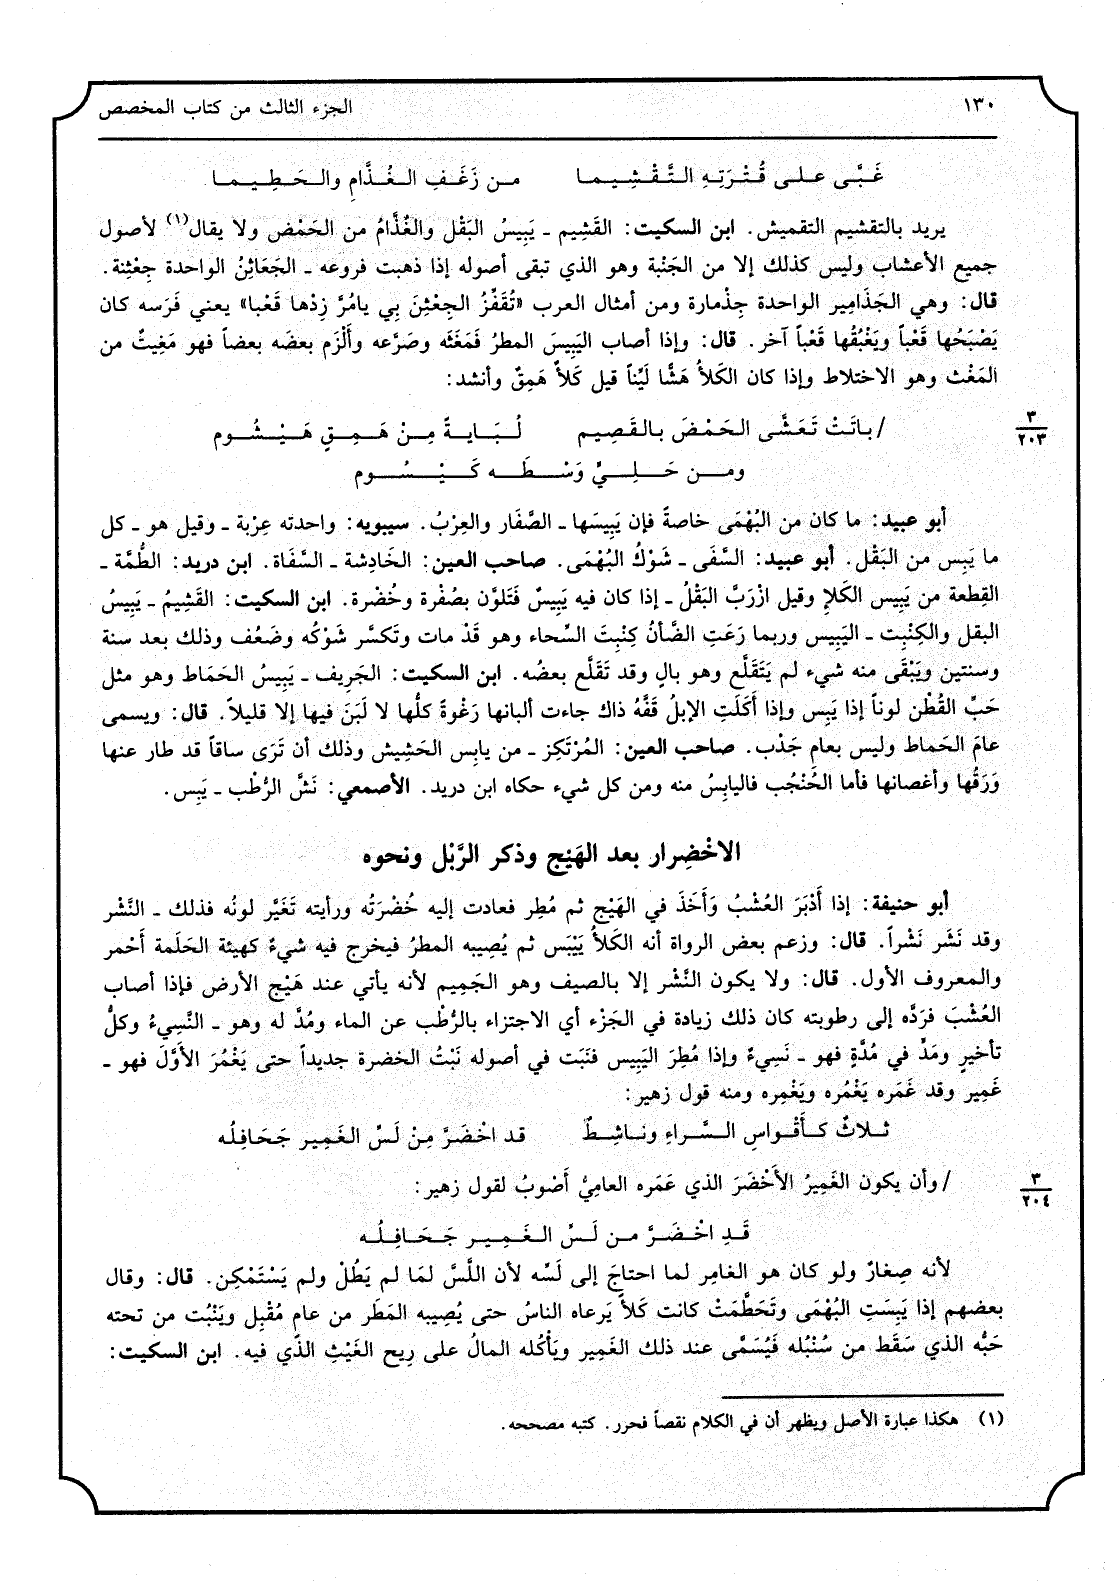 ١٣٠
الجزء الثالث من كتاب المخصص
غَبَّى على قُتْرَتِهِ التَّقْشِيما من زَغَفِ الغُذَّامِ والحَطِيما
يريد بالتقشيم التقميش. ابن السكيت: القَشِيم ـ يَبِيسُ البَقْل والغُذَّامُ من الحَمْض ولا يقال(١) لأصول
جميع الأعشاب وليس كذلك إلا من الجَنْبة وهو الذي تبقى أصوله إذا ذهبت فروعه ـ الجَعَاثِنُ الواحدة جِعْثِنة.
قال: وهي الجَذَامِير الواحدة جِذْمارة ومن أمثال العرب «تُقَفِّزُ الجِعْثِنَ بِي يامُرَّ زِدْها قَعْبا» يعني فَرَسه كان
يَصْبَحُها قَعْباً ويَغْبُقُها قَعْباً آخر. قال: وإذا أصاب اليَبِيسَ المطرُ فَمَغَثَه وصَرَّعه وأَلْزَم بعضَه بعضاً فهو مَغِيثٌ من
المَغْث وهو الاختلاط وإذا كان الكَلأُ هَشًّا لَيِّناً قيل كَلأٌ هَمِقٌ وأنشد:
/ باتَتْ تَعَشَّى الحَمْضَ بالقَصِيم لُبَايةً مِنْ هَمِقٍ هَيْشُوم
٣
٢٠٣
ومن حَلِيٍّ وَسْطَه كَيْسُوم
أبو عبيد: ما كان من البُهْمَى خاصةً فإن يَبِيسَها ـ الصَّفَار والعِرْبُ. سيبويه: واحدته عِرْبة ـ وقيل هو ـ كل
ما يَبِس من البَقْل. أبو عبيد: السَّفَى ـ شَوْكُ البُهْمَى. صاحب العين: الخَادِشة ـ السَّفَاة. ابن دريد: الطُّمَّة ـ
القِطعة من يَبِيس الكَلإِ وقيل ازْرَبَّ البَقْلُ ـ إذا كان فيه يَبِيسٌ فَتَلوَّن بصُفْرة وخُضْرة. ابن السكيت: القَشِيمُ ـ يَبِيسُ
البقل والكِنْبِت ـ اليَبِيس وربما رَعَتِ الضَّأنُ كِنْبِتَ السِّحاء وهو قَدْ مات وتَكسَّر شَوْكُه وضَعُف وذلك بعد سنة
وسنتين ويَبْقَى منه شيء لم يَتَقَلَّع وهو بالٍ وقد تَقَلَّع بعضُه. ابن السكيت: الجَرِيف ـ يَبِيسُ الحَمَاط وهو مثل
حَبِّ القُطْن لوناً إذا يَبِس وإذا أَكَلَتِ الإبلُ قَفَّهُ ذاك جاءت ألبانها رَغْوةً كلُّها لا لَبَنَ فيها إلا قليلاً. قال: ويسمى
عامَ الحَماط وليس بعامِ جَدْب. صاحب العين: المُرْتَكِز ـ من يابِس الحَشِيش وذلك أن تَرَى ساقاً قد طار عنها
وَرَقُها وأغصانها فأما الخُنْجُب فاليابِسُ منه ومن كل شيء حكاه ابن دريد. الأصمعي: نَشَّ الرُّطْب ـ يَبِس.
الاخْضِرار بعد الهَيْج وذكر الرَّبْل ونحوه
أبو حنيفة: إذا أَدْبَرَ العُشْبُ وَأَخَذَ في الهَيْج ثم مُطِر فعادت إليه خُضْرَتُه ورأيته تَغَيَّر لونُه فذلك ـ النَّشْر
وقد نَشَر نَشْراً. قال: وزعم بعض الرواة أنه الكَلأُ يَيْبَس ثم يُصِيبه المطرُ فيخرج فيه شيءٌ كهيئة الحَلَمة أَحْمر
والمعروف الأول. قال: ولا يكون النَّشْر إلا بالصيف وهو الجَمِيم لأنه يأتي عند هَيْج الأرض فإذا أصاب
العُشْبَ فرَدَّه إلى رطوبته كان ذلك زيادة في الجَزْء أي الاجتزاء بالرُّطْب عن الماء ومُدَّ له وهو ـ النَّسِيءُ وكلُّ
تأخيرٍ ومَدٍّ في مُدَّةٍ فهو ـ نَسِيءٌ وإذا مُطِرَ اليَبِيس فنَبَت في أصوله نَبْتُ الخضرة جديداً حتى يَغْمُرَ الأَوَّلَ فهو ـ
غَمِير وقد غَمَره يَغْمُره ويَغْمِره ومنه قول زهير:
ثلاثٌ كَأَقْواسِ السَّراءِ وناشِطٌ قد اخْضَرَّ مِنْ لَسِّ الغَمِيرِ جَحَافِلُه
/ وأن يكون الغَمِيرُ الأَخْضَرَ الذي غَمَره العامِيُّ أَصْوبُ لقول زهير:
٣
٢٠٤
قَدِ اخْضَرَّ من لَسِّ الغَمِيرِ جَحَافِلُه
لأنه صِغارٌ ولو كان هو الغامِر لما احتاجَ إلى لَسِّه لأن اللَّسَّ لمَا لم يَطُلْ ولم يَسْتَمْكِن. قال: وقال
بعضهم إذا يَبِسَتِ البُهْمَى وتَحَطَّمَتْ كانت كَلأً يَرعاه الناسُ حتى يُصِيبه المَطَر من عام مُقْبِل ويَنْبُت من تحته
حَبُّه الذي سَقَط من سُنْبُله فَيُسَمَّى عند ذلك الغَمِير ويَأْكُله المالُ على رِيح الغَيْثِ الذّي فيه. ابن السكيت:
(١) هكذا عبارة الأصل ويظهر أن في الكلام نقصاً فحرر. كتبه مصححه.